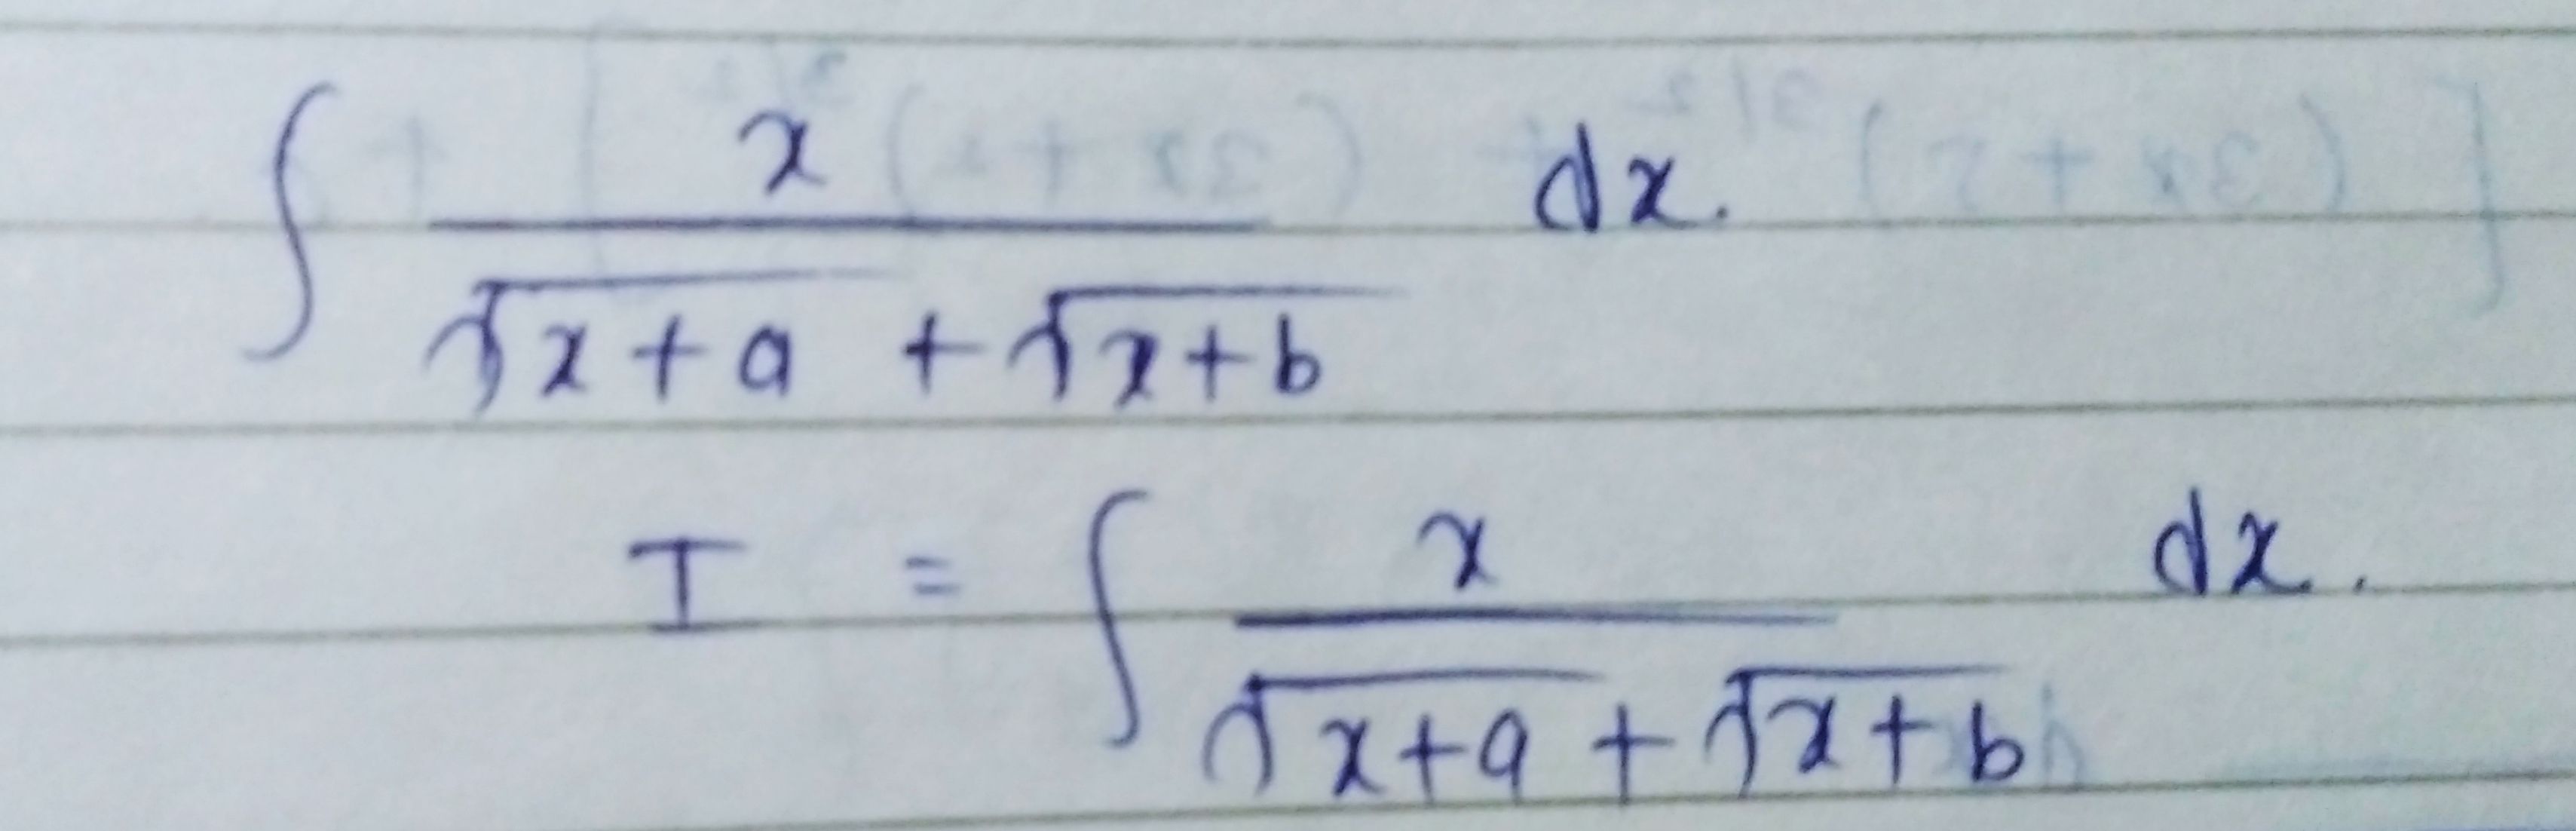 ∫ x / (√(x+a) + √(x+b)) dx.
I = ∫ x / (√(x+a) + √(x+b)) dx.